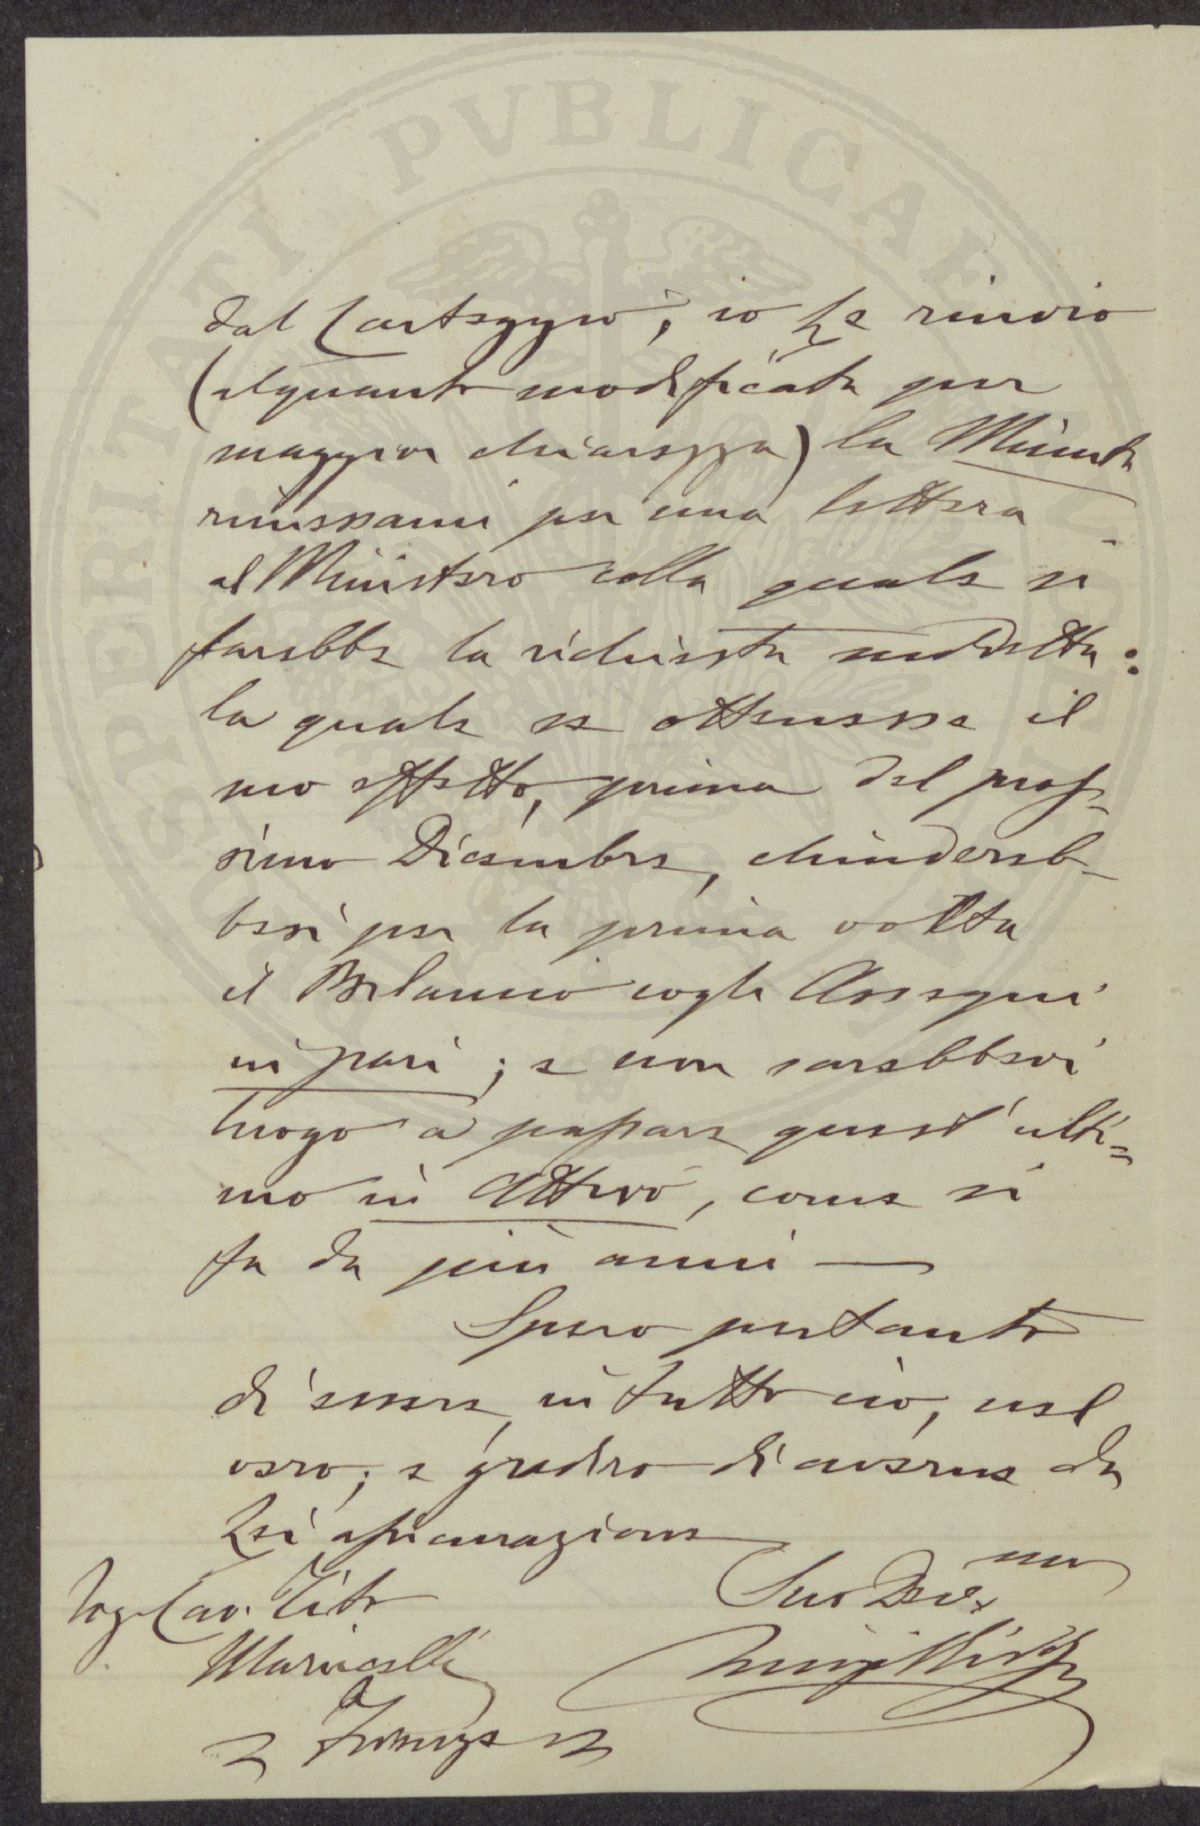 PROSPERITATI PVBLICAE
dal Carteggio, io Le rinvio
(alquanto modificata per
maggior chiarezza) la Minuta
rimessami per una lettera
al Ministero colla quale si
farebbe la richiesta suddetta:
la quale se ottenesse il
suo effetto, prima del pros-
simo Dicembre, chiudereb-
besi per la prima volta
il Bilancio cogli Assegni
in pari; e non sarebbevi
luogo a passare quest'ulti=
mo in Attivo, come si
fa da più anni —
Spero pertanto
di essere, in tutto ciò, nel
vero; e gradirò di averne da
Lei assicurazione
Suo Dev.mo
Ing. Cav. Tito
Maria
Firenze